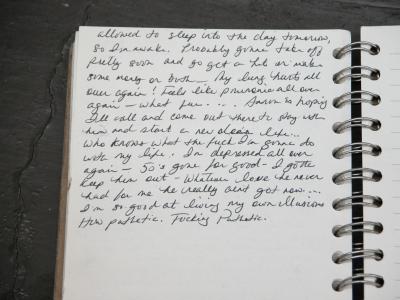 allowed to sleep into the day tomorrow,
so I'm awake. Probably gonna take off
pretty soon and go get a hit or make
some money or both — My lung hurts all
over again! Feels like pneumonia all over
again — what fun.... Aaron is hoping
I'll call and come out there to stay with
him and start a new clean life...
Who knows what the fuck I'm gonna do
with my life. I'm depressed all over
again — So's gone for good — I gotta
keep him out — Whatever love he never
had for me he really aint got now....
I'm so good at living my own illusions
How pathetic. Fucking Pathetic.